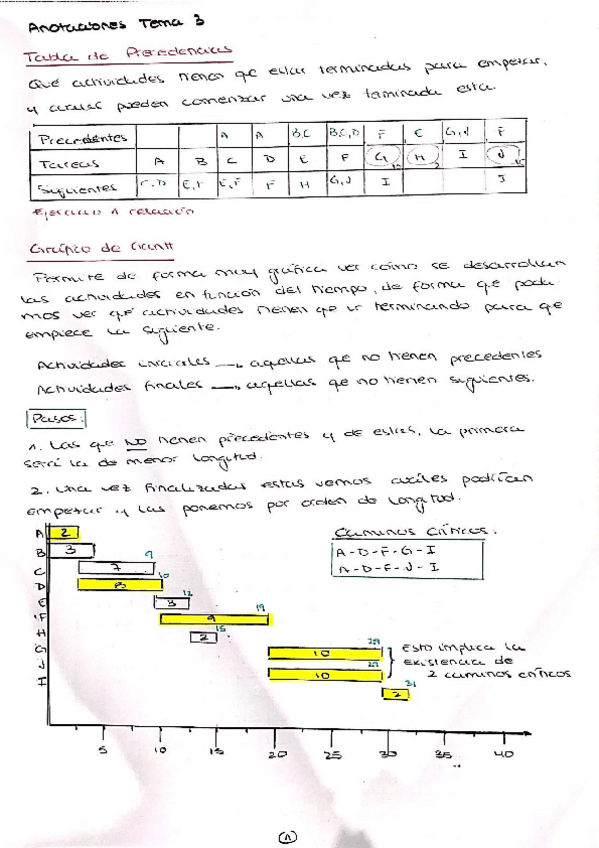 Anotaciones Tema 3
Tabla de Precedencias
Qué actividades tienen qe estar terminadas para empezar,
y cuales pueden comenzar una vez terminada esta.
Precedentes A A B,C B,C,D F E G,J F
Tareas A B C D E F G H I J
Siguientes C,D E,F E,F F H G,J I I
Ejercicio 1 relación
Gráfico de Gantt
Permite de forma muy gráfica ver cómo se desarrollan
las actividades en función del tiempo, de forma qe poda
mos ver qé actividades tienen qe ir terminando para qe
empiece la siguiente.
Actividades iniciales → aquellas qe no tienen precedentes
Actividades finales → aquellas qe no tienen siguientes.
Pasos:
1. Las que NO tienen precedentes y de estas, la primera
será la de menor longitud.
2. Una vez finalizadas estas vemos cuáles podrían
empezar y las ponemos por orden de longitud.
Caminos críticos:
A-D-F-G-I
A-D-F-J-I
A 2
B 3
C 7 9
D 8 10
E 3 12
F 9 19
H 2 15
G 10 29
J 10 29
I 2 31
Esto implica la
existencia de
2 caminos críticos
5 10 15 20 25 30 35 40
1